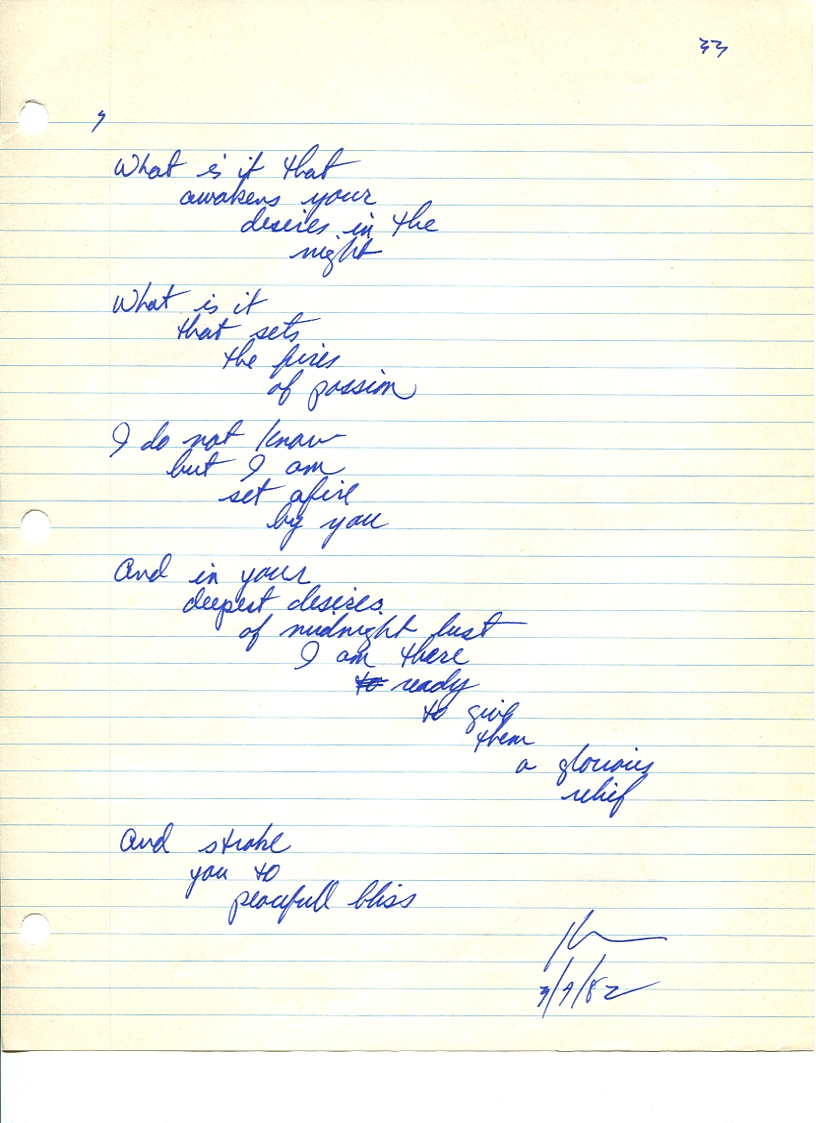 33
What is it that
awakens your
desires in the
night
What is it
that sets
the fires
of passion
I do not know
but I am
set afire
by you
And in your
deepest desires
of midnight lust
I am there
to ready
to give
them
a glorious
relief
And stroke
you to
peacefull bliss